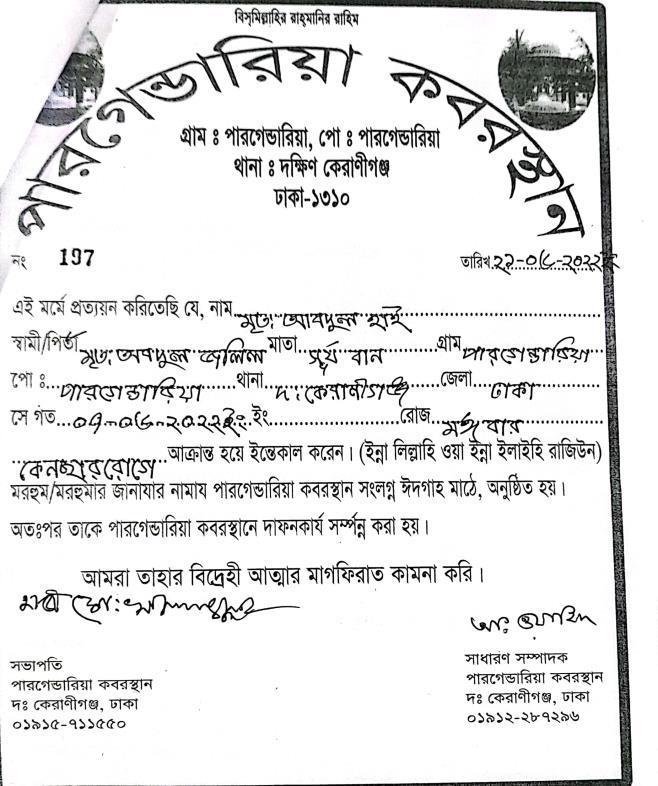 বিসমিল্লাহির রাহমানির রাহিম
পারগেন্ডারিয়া কবরস্থান
গ্রাম ঃ পারগেন্ডারিয়া, পো ঃ পারগেন্ডারিয়া
থানা ঃ দক্ষিণ কেরাণীগঞ্জ
ঢাকা-১৩১০
নং 197 তারিখ
এই মর্মে প্রত্যয়ন করিতেছি যে, নাম মৃত: আবদুল হাই
স্বামী/পির্তা মৃত: আবদুল জলিল মাতা সূর্য বান গ্রাম পারগেন্ডারিয়া
পো ঃ পারগেন্ডারিয়া থানা দ: কেরাণীগঞ্জ জেলা ঢাকা
সে গত ইং রোজ মঙ্গবার
কেনছার রোগে আক্রান্ত হয়ে ইন্তেকাল করেন। (ইন্না লিল্লাহি ওয়া ইন্না ইলাইহি রাজিউন)
মরহুম/মরহুমার জানাযার নামায পারগেন্ডারিয়া কবরস্থান সংলগ্ন ঈদগাহ মাঠে, অনুষ্ঠিত হয়।
অতঃপর তাকে পারগেন্ডারিয়া কবরস্থানে দাফনকার্য সর্ম্পন্ন করা হয়।
আমরা তাহার বিদ্রেহী আত্মার মাগফিরাত কামনা করি।
সভাপতি
পারগেন্ডারিয়া কবরস্থান
দঃ কেরাণীগঞ্জ, ঢাকা
০১৯১৫-৭১১৫৫০
সাধারণ সম্পাদক
পারগেন্ডারিয়া কবরস্থান
দঃ কেরাণীগঞ্জ, ঢাকা
০১৯১২-২৮৭২৯৬